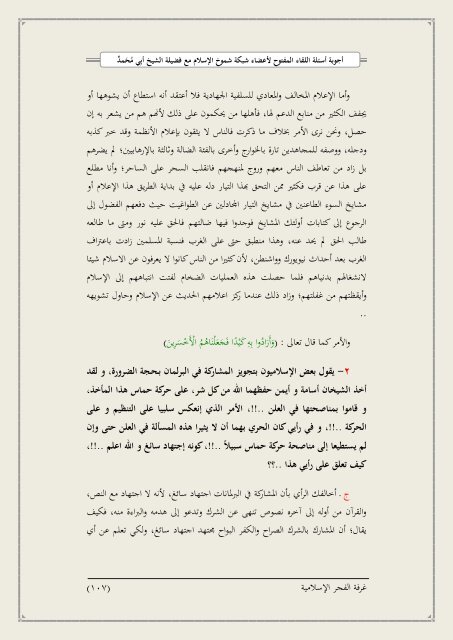 أجوبة أسئلة اللقاء المفتوح لأعضاء شبكة شموخ الإسلام مع فضيلة الشيخ أبي مُحَمَّد
وأما الإعلام المخالف والمعادي للسلفية الجهادية فلا أعتقد أنه استطاع أن يشوهها أو
يجفف الكثير من منابع الدعم لها، فأهلها من يحكمون على ذلك لأنهم هم من يشعر به إن
حصل، ونحن نرى الأمر بخلاف ما ذكرت فالناس لا يثقون بإعلام الأنظمة وقد خبر كذبه
ودجله، ووصفه للمجاهدين تارة بالخوارج وأخرى بالفئة الضالة وثالثة بالإرهابيين؛ لم يضرهم
بل زاد من تعاطف الناس معهم وروج لمنهجهم فانقلب السحر على الساحر؛ وأنا مطلع
على هذا عن قرب فكثير ممن التحق بهذا التيار دله عليه في بداية الطريق هذا الإعلام أو
مشايخ السوء الطاعنين في مشايخ التيار المجادلين عن الطواغيت حيث دفعهم الفضول إلى
الرجوع إلى كتابات أولئك المشايخ فوجدوا فيها ضالتهم فالحق عليه نور ومتى ما طالعه
طالب الحق لم يحد عنه، وهذا منطبق حتى على الغرب فنسبة المسلمين زادت باعتراف
الغرب بعد أحداث نيويورك وواشنطن، لأن كثيرا من الناس كانوا لا يعرفون عن الاسلام شيئا
لانشغالهم بدنياهم فلما حصلت هذه العمليات الضخام لفتت انتباههم إلى الإسلام
وأيقظتهم من غفلتهم؛ وزاد ذلك عندما ركز اعلامهم الحديث عن الإسلام وحاول تشويهه
..
والأمر كما قال تعالى : (وَأَرَادُوا بِهِ كَيْدًا فَجَعَلْنَاهُمُ الْأَخْسَرِينَ)
٢– يقول بعض الإسلاميون بتجويز المشاركة في البرلمان بحجة الضرورة، و لقد
أخذ الشيخان أسامة و أيمن حفظهما الله من كل شر، على حركة حماس هذا المأخذ،
و قاموا بمناصحتها في العلن ..!!، الأمر الذي إنعكس سلبيا على التنظيم و على
الحركة ..!!، و في رأيي كان الحري بهما أن لا يثيرا هذه المسألة في العلن حتى وإن
لم يستطيعا إلى مناصحة حركة حماس سبيلاً ..!!، كونه إجتهاد سائغ و الله اعلم ..!!،
كيف تعلق على رأيي هذا ..؟؟
ج . أخالفك الرأي بأن المشاركة في البرلمانات اجتهاد سائغ، لأنه لا اجتهاد مع النص،
والقرآن من أوله إلى آخره نصوص تنهى عن الشرك وتدعو إلى هدمه والبراءة منه، فكيف
يقال؛ أن المشارك بالشرك الصراح والكفر البواح مجتهد اجتهاد سائغ، ولكي تعلم عن أي
غرفة الفجر الإسلامية
(١٠٧)